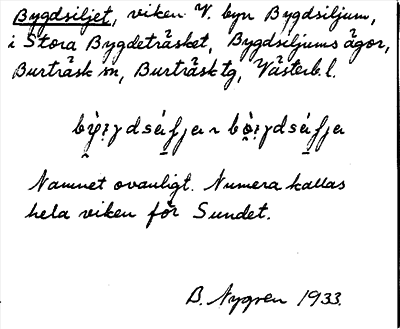 Bygdsiljet, viken V. byn Bygdsiljum,
i Stora Bygdeträsket, Bygdsiljums ägor,
Burträsk sn, Burträsk tg, Västerb. l.
Namnet ovanligt. Numera kallas
hela viken för Sundet.
B. Nygren 1933.